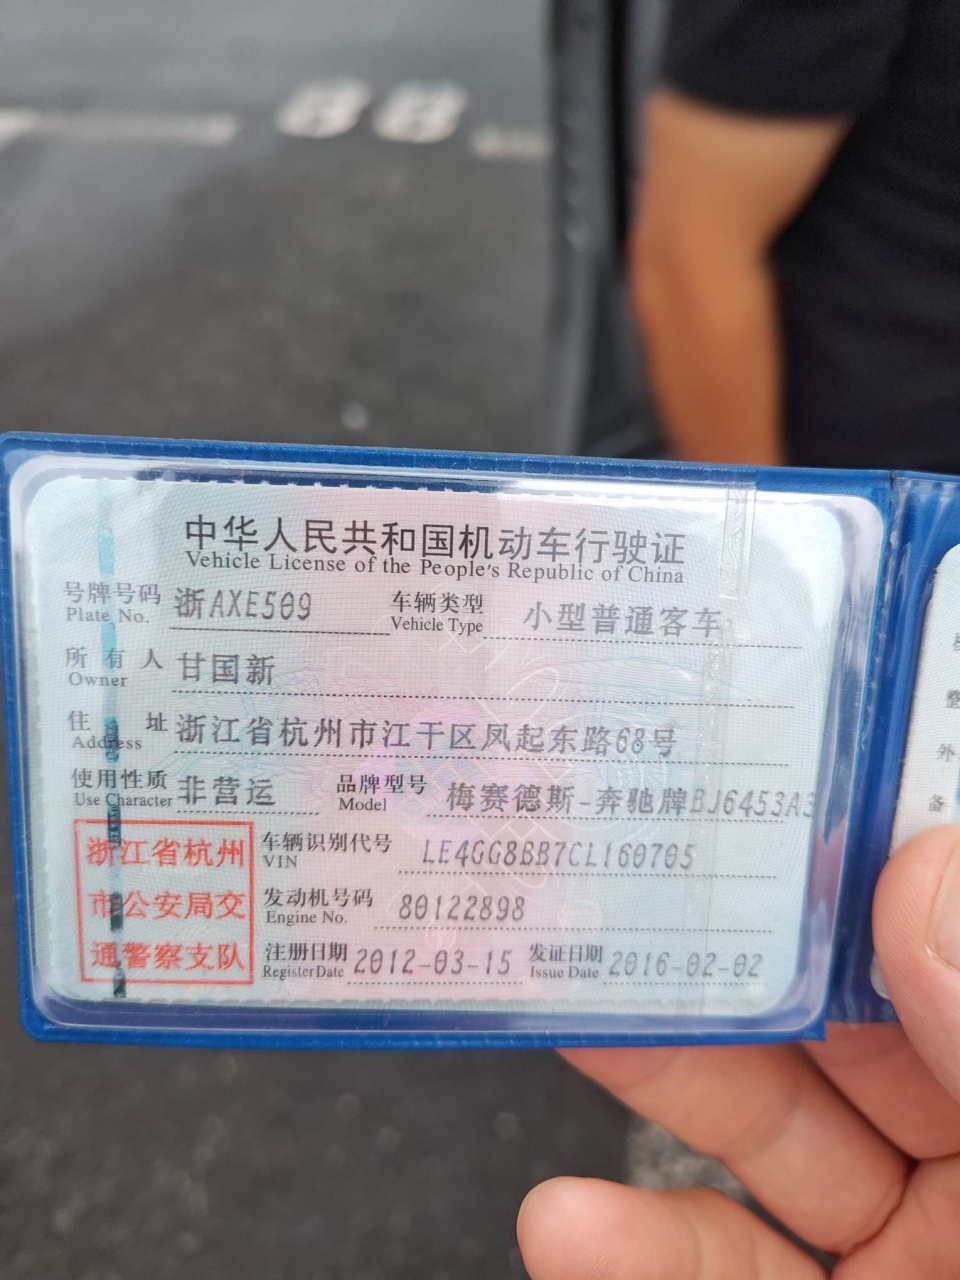 88
中华人民共和国机动车行驶证
Vehicle License of the People's Republic of China
号牌号码 浙AXE509 车辆类型 小型普通客车
Plate No. Vehicle Type
所有人 甘国新
Owner
住址 浙江省杭州市江干区凤起东路68号
Address
使用性质 非营运 品牌型号 梅赛德斯-奔驰牌BJ6453A3
Use Character Model
浙江省杭州
市公安局交
通警察支队
车辆识别代号 LE4GG8BB7CL160705
VIN
发动机号码 80122898
Engine No.
注册日期 2012-03-15 发证日期 2016-02-02
Register Date Issue Date
整
外
备